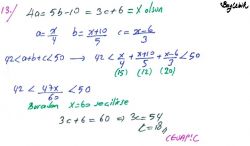 13./ 4a = 5b-10 = 3c+6 = x olsun
a = x/4 b = x+10/5 c = x-6/3
42 < a+b+c < 50 → 42 < x/4 + x+10/5 + x-6/3 < 50
(15) (12) (20)
42 < 47x/60 < 50
Buradan x=60 seçilirse
3c+6 = 60 ⇒ 3c = 54
c = 18
CEVAP: C